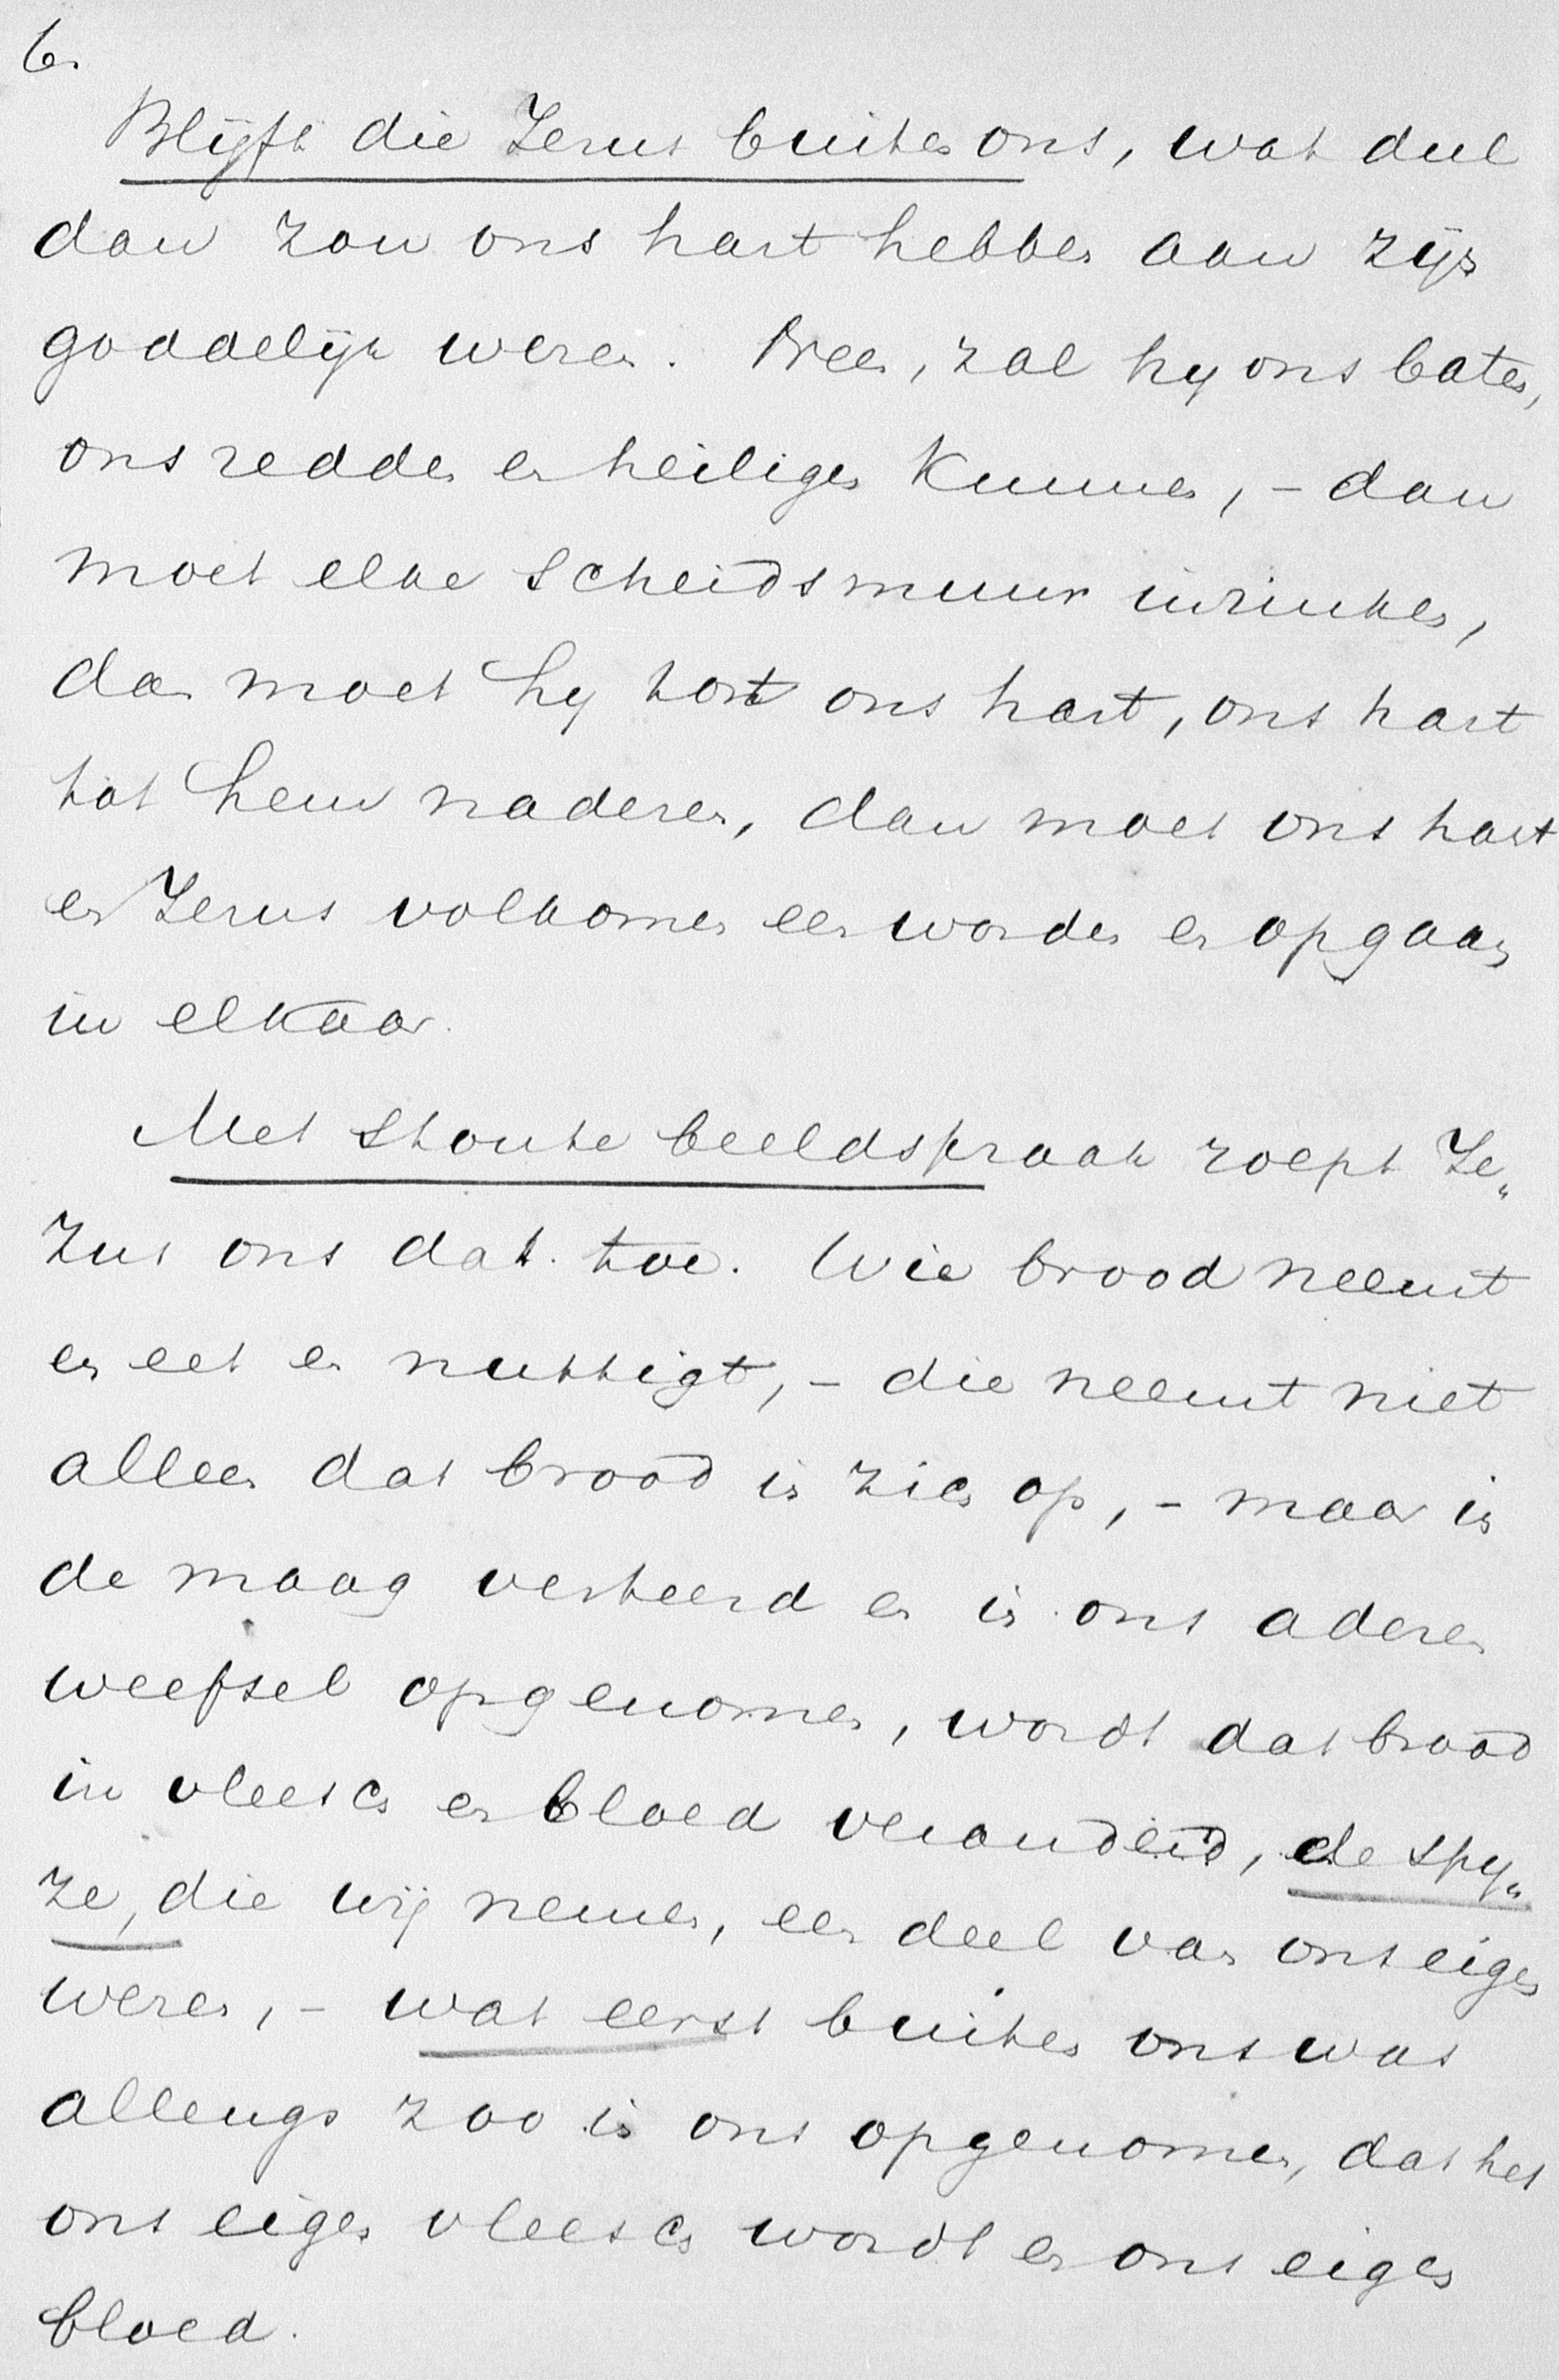 6.
Blijft die Jezus buiten ons, wat deel
dan zou ons hart hebben aan zijn
goddelijk wezen. Neen, zal hy ons baten,
ons redden en heiligen kunnen, – dan
moet elke scheidsmuur inzinken,
dan moet hy tot ons hart, ons hart
tot hem naderen, dan moet ons hart
en Jezus volkomen een worden en opgaan
in elkaar.
Met stoute beeldspraak roept Je„
zus ons dat toe. Wie brood neemt
en eet en nuttigt, – die neemt niet
alleen dat brood in zich op, – maar in
de maag verteerd en in ons aderen
weefsel opgenomen, wordt dat brood
in vleesch en bloed veranderd, de spy„
ze, die wij nemen, een deel van ons eigen
wezen, – wat eerst buiten ons was
allengs zoo in ons opgenomen, dat het
ons eigen vleesch wordt en ons eigen
bloed.